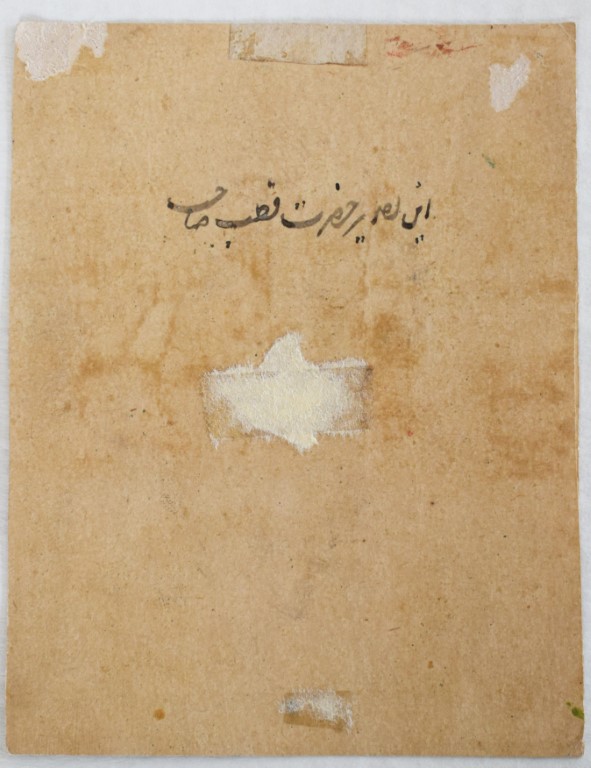 این تصویر حضرت قطب صاحب